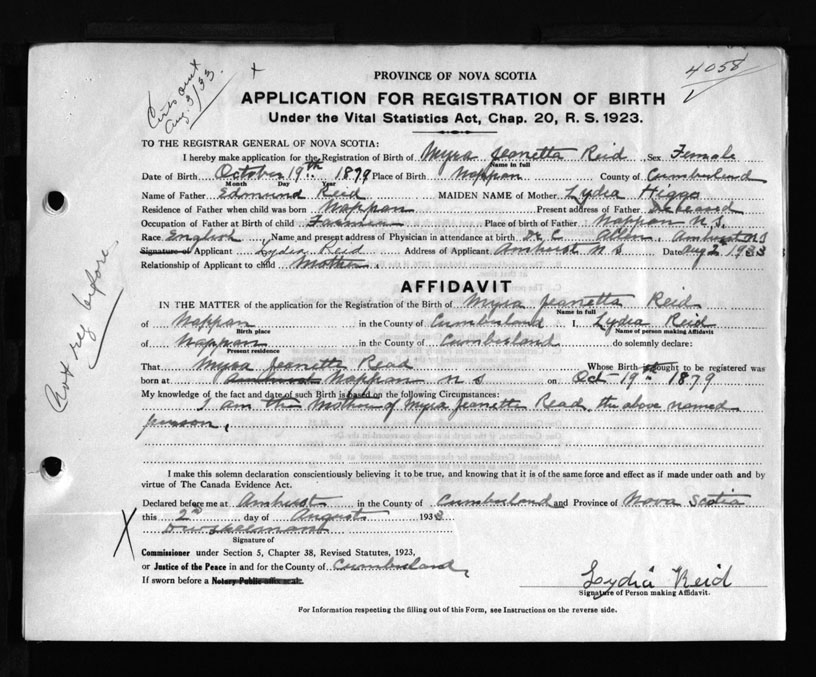 Certs out
Aug. 3/33.
4058
PROVINCE OF NOVA SCOTIA
APPLICATION FOR REGISTRATION OF BIRTH
Under the Vital Statistics Act, Chap. 20, R. S. 1923.
TO THE REGISTRAR GENERAL OF NOVA SCOTIA:
I hereby make application for the Registration of Birth of Myra Jeanetta Reid Sex Female
Name in full
Date of Birth October 19th 1879 Place of Birth Nappan County of Cumberland
Month Day Year
Name of Father Edmund Reid MAIDEN NAME of Mother Lydia Higgs
Residence of Father when child was born Nappan Present address of Father Deceased
Occupation of Father at Birth of child Farmer Place of birth of Father Nappan N.S.
Race English Name and present address of Physician in attendance at birth Dr C Allen, Amherst NS
Signature of Applicant Lydia Reid Address of Applicant Amherst N S Date Aug 2 1933
Relationship of Applicant to child Mother
AFFIDAVIT
IN THE MATTER of the application for the Registration of the Birth of Myra Jeanetta Reid
Name in full
of Nappan in the County of Cumberland I, Lydia Reid
Birth place Name of person making Affidavit
of Nappan in the County of Cumberland do solemnly declare:
Present residence
That Myra Jeanette Read Whose Birth sought to be registered was
born at Amherst Nappan N S on Oct 19th 1879
My knowledge of the fact and date of such Birth is based on the following Circumstances:
I am the Mother of Myra Jeanette Read the above named
person.
Not reg before.
I make this solemn declaration conscientiously believing it to be true, and knowing that it is of the same force and effect as if made under oath and by
virtue of The Canada Evidence Act.
Declared before me at Amherst in the County of Cumberland and Province of Nova Scotia
this 2nd day of August 1933
Signature of
Commissioner under Section 5, Chapter 38, Revised Statutes, 1923,
or Justice of the Peace in and for the County of Cumberland
If sworn before a Notary Public affix seal.
Lydia Reid
Signature of Person making Affidavit.
For Information respecting the filling out of this Form, see Instructions on the reverse side.